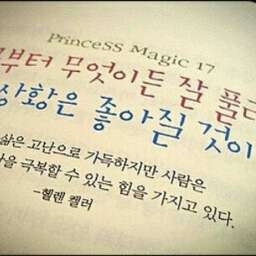 PrinceSS Magic 17
부터 무엇이든 잘 풀
상황은 좋아질 것이
삶은 고난으로 가득하지만 사람은
을 극복할 수 있는 힘을 가지고 있다.
-헬렌 켈러